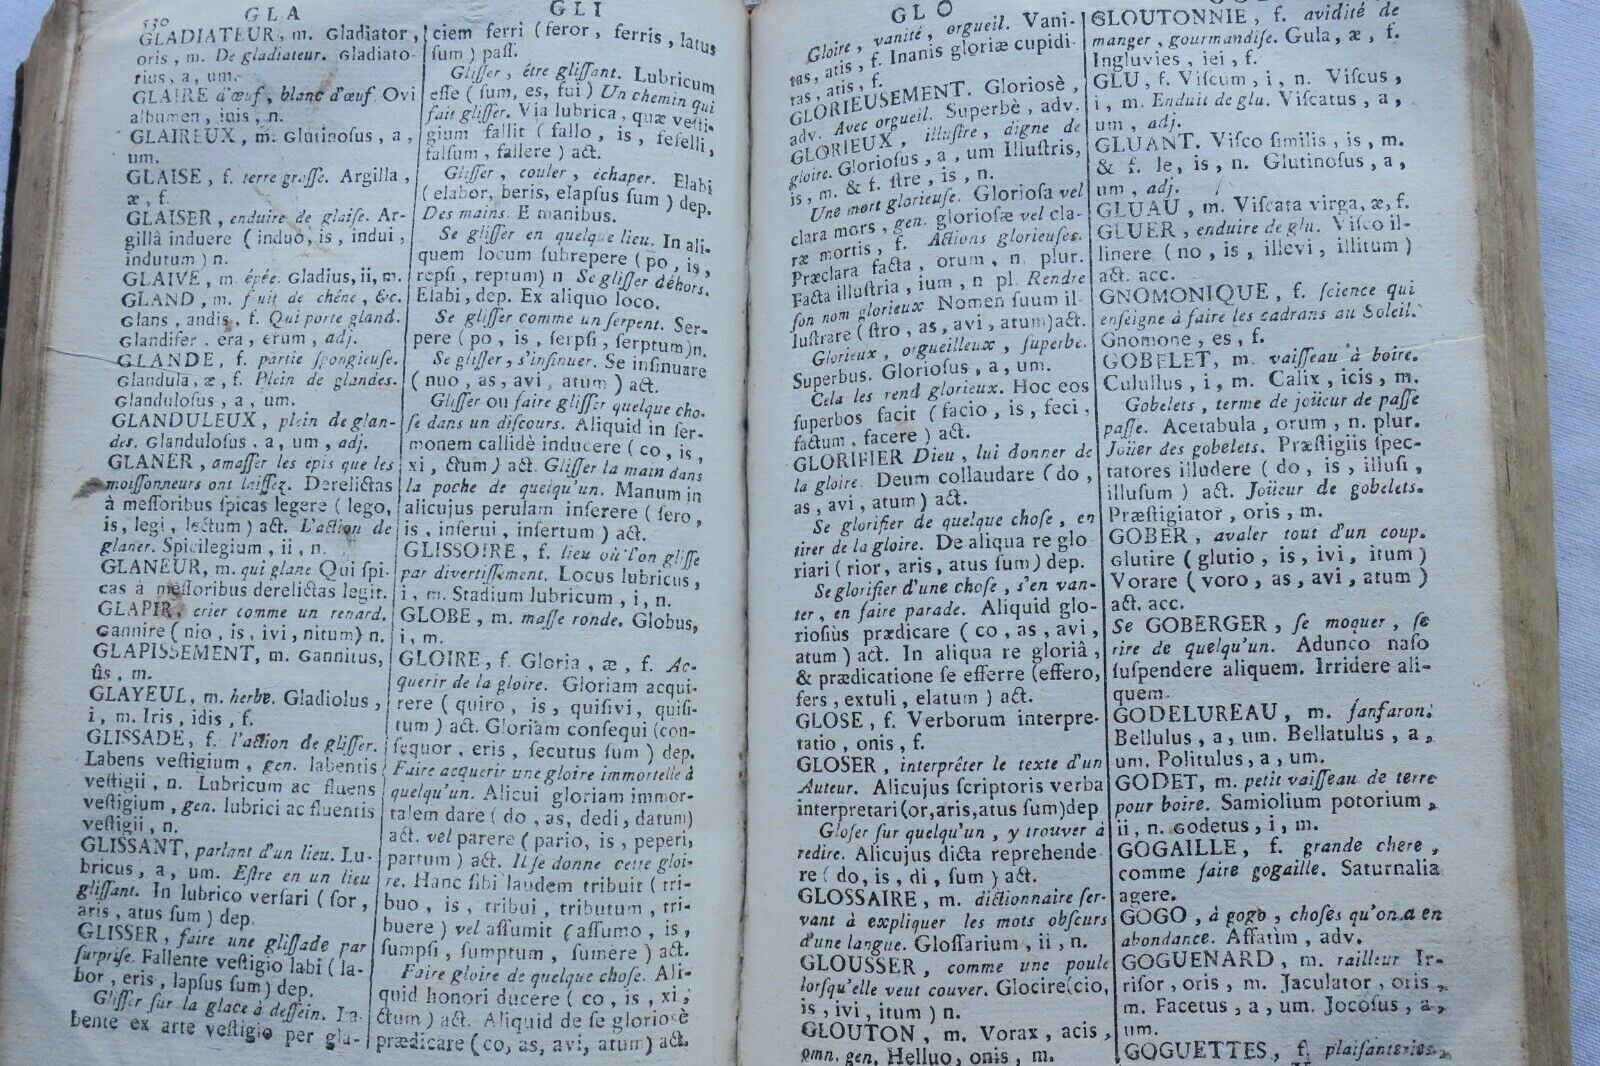 530
GLA
GLADIATEUR, m. Gladiator,
oris, m. De gladiateur. Gladiato-
rius, a, um.
GLAIRE d'œuf, blanc d'œuf. Ovi
albumen, inis, n.
GLAIREUX, m. Glutinoſus, a,
um.
GLAISE, f. terre graſſe. Argilla,
æ, f.
GLAISER, enduire de glaiſe. Ar-
gillâ induere (induo, is, indui,
indutum) n.
GLAIVE, m. épée. Gladius, ii, m.
GLAND, m. fruit de chêne, &c.
Glans, andis, f. Qui porte gland.
Glandifer. era, erum, adj.
GLANDE, f. partie ſpongieuſe.
Glandula, æ, f. Plein de glandes.
Glanduloſus, a, um.
GLANDULEUX, plein de glan-
des. Glanduloſus, a, um, adj.
GLANER, amaſſer les épis que les
moiſſonneurs ont laiſſez. Derelictas
à meſſoribus ſpicas legere (lego,
is, legi, lectum) act. L'action de
glaner. Spicilegium, ii, n.
GLANEUR, m. qui glane Qui ſpi-
cas à meſſoribus derelictas legit.
GLAPIR, crier comme un renard.
Gannire (nio, is, ivi, nitum) n.
GLAPISSEMENT, m. Gannitus,
ûs, m.
GLAYEUL, m. herbe. Gladiolus,
i, m. Iris, idis, f.
GLISSADE, f. l'action de gliſſer.
Labens veſtigium, gen. labentis
veſtigii, n. Lubricum ac fluens
veſtigium, gen. lubrici ac fluentis
veſtigii, n.
GLISSANT, parlant d'un lieu. Lu-
bricus, a, um. Eſtre en un lieu
gliſſant. In lubrico verſari (for,
aris, atus ſum) dep.
GLISSER, faire une gliſſade par
ſurpriſe. Fallente veſtigio labi (la-
bor, eris, lapſus ſum) dep.
Gliſſer ſur la glace à deſſein. La-
bente ex arte veſtigio per gla-
GLI
ciem ferri (feror, ferris, latus
ſum) paſſ.
Gliſſer, être gliſſant. Lubricum
eſſe (ſum, es, fui) Un chemin qui
fait gliſſer. Via lubrica, quæ veſti-
gium fallit (fallo, is, fefelli,
falſum, fallere) act.
Gliſſer, couler, échaper. Elabi
(elabor, beris, elapſus ſum) dep.
Des mains. E manibus.
Se gliſſer en quelque lieu. In ali-
quem locum ſubrepere (po, is,
repſi, reptum) n Se gliſſer déhors.
Elabi, dep. Ex aliquo loco.
Se gliſſer comme un ſerpent. Ser-
pere (po, is, ſerpſi, ſerptum) n.
Se gliſſer, s'inſinuer. Se inſinuare
(nuo, as, avi, atum) act.
Gliſſer ou faire gliſſer quelque cho-
ſe dans un diſcours. Aliquid in ſer-
monem callidè inducere (co, is,
xi, ctum) act. Gliſſer la main dans
la poche de quelqu'un. Manum in
alicujus perulam inſerere (ſero,
is, inſerui, inſertum) act.
GLISSOIRE, f. lieu où l'on gliſſe
par divertiſſement. Locus lubricus,
i, m. Stadium lubricum, i, n.
GLOBE, m. maſſe ronde. Globus,
i, m.
GLOIRE, f. Gloria, æ, f. Ac-
querir de la gloire. Gloriam acqui-
rere (quiro, is, quiſivi, quiſi-
tum) act. Gloriam conſequi (con-
ſequor, eris, ſecutus ſum) dep.
Faire acquerir une gloire immortelle à
quelqu'un. Alicui gloriam immor-
talem dare (do, as, dedi, datum)
act. vel parere (pario, is, peperi,
partum) act. Il ſe donne cette gloi-
re. Hanc ſibi laudem tribuit (tri-
buo, is, tribui, tributum, tri-
buere) vel aſſumit (aſſumo, is,
ſumpſi, ſumptum, ſumere) act.
Faire gloire de quelque choſe. Ali-
quid honori ducere (co, is, xi,
ctum) act. Aliquid de ſe glorioſè
prædicare (co, as, avi, atum) act.
GLO
Gloire, vanité, orgueil. Vani-
tas, atis, f. Inanis gloriæ cupidi-
tas, atis, f.
GLORIEUSEMENT. Glorioſè,
adv. Avec orgueil. Superbè, adv.
GLORIEUX, illuſtre, digne de
gloire. Glorioſus, a, um Illuſtris,
is, m. & f. ſtre, is, n.
Une mort glorieuſe. Glorioſa vel
clara mors, gen. glorioſæ vel cla-
ræ mortis, f. Actions glorieuſes.
Præclara facta, orum, n. plur.
Facta illuſtria, ium, n pl. Rendre
ſon nom glorieux Nomen ſuum il-
luſtrare (ſtro, as, avi, atum) act.
Glorieux, orgueilleux, ſuperbe.
Superbus. Glorioſus, a, um.
Cela les rend glorieux. Hoc eos
ſuperbos facit (facio, is, feci,
factum, facere) act.
GLORIFIER Dieu, lui donner de
la gloire. Deum collaudare (do,
as, avi, atum) act.
Se glorifier de quelque choſe, en
tirer de la gloire. De aliqua re glo-
riari (rior, aris, atus ſum) dep.
Se glorifier d'une choſe, s'en van-
ter, en faire parade. Aliquid glo-
rioſiùs prædicare (co, as, avi,
atum) act. In aliqua re gloriâ,
& prædicatione ſe efferre (effero,
fers, extuli, elatum) act.
GLOSE, f. Verborum interpre-
tatio, onis, f.
GLOSER, interpréter le texte d'un
Auteur. Alicujus ſcriptoris verba
interpretari (or, aris, atus ſum) dep
Gloſer ſur quelqu'un, y trouver à
redire. Alicujus dicta reprehende-
re (do, is, di, ſum) act.
GLOSSAIRE, m. dictionnaire ſer-
vant à expliquer les mots obſcurs
d'une langue. Gloſſarium, ii, n.
GLOUSSER, comme une poule
lorſqu'elle veut couver. Glocire (cio,
is, ivi, itum) n.
GLOUTON, m. Vorax, acis,
omn. gen. Helluo, onis, m.
GLOUTONNIE, f. avidité de
manger, gourmandiſe. Gula, æ, f.
Ingluvies, iei, f.
GLU, f. Viſcum, i, n. Viſcus,
i, m. Enduit de glu. Viſcatus, a,
um, adj.
GLUANT. Viſco ſimilis, is, m.
& f. le, is, n. Glutinoſus, a,
um, adj.
GLUAU, m. Viſcata virga, æ, f.
GLUER, enduire de glu. Viſco il-
linere (no, is, illevi, illitum)
act. acc.
GNOMONIQUE, f. ſcience qui
enſeigne à faire les cadrans au Soleil.
Gnomone, es, f.
GOBELET, m. vaiſſeau à boire.
Culullus, i, m. Calix, icis, m.
Gobelets, terme de joüeur de paſſe
paſſe. Acetabula, orum, n. plur.
Joüer des gobelets. Præſtigiis ſpec-
tatores illudere (do, is, illuſi,
illuſum) act. Joüeur de gobelets.
Præſtigiator, oris, m.
GOBER, avaler tout d'un coup.
Glutire (glutio, is, ivi, itum)
Vorare (voro, as, avi, atum)
act. acc.
Se GOBERGER, ſe moquer, ſe
rire de quelqu'un. Adunco naſo
ſuſpendere aliquem. Irridere ali-
quem.
GODELUREAU, m. fanfaron.
Bellulus, a, um. Bellatulus, a,
um. Politulus, a, um.
GODET, m. petit vaiſſeau de terre
pour boire. Samiolium potorium,
ii, n. Godetus, i, m.
GOGAILLE, f. grande chere,
comme faire gogaille. Saturnalia
agere.
GOGO, à gogo, choſes qu'on a en
abondance. Affatìm, adv.
GOGUENARD, m. railleur Ir-
riſor, oris, m. Jaculator, oris,
m. Facetus, a, um. Jocoſus, a,
um.
GOGUETTES, f. plaiſanteries,